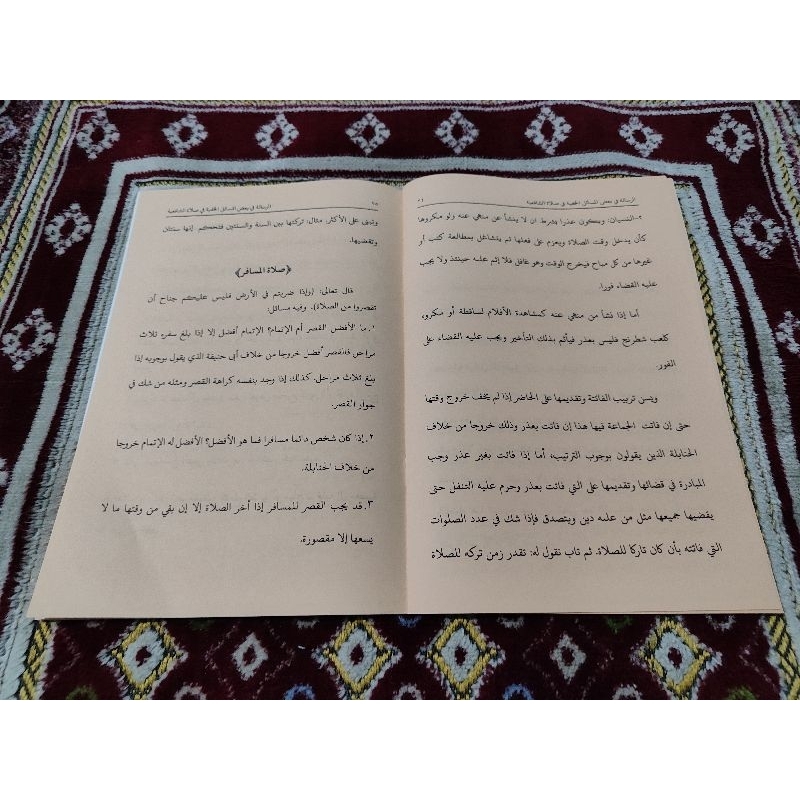 الرسالة في بعض المسائل الخفية في صلاة الشافعية
٢-النسيان: ويكون عذرا بشرط. ان لا ينشأ عن منهي عنه ولو مكروها
كأن يدخل وقت الصلاة ويعزم على فعلها ثم يتشاغل بمطالعة كتب أو
غيرها من كل مباح فيخرج الوقت وهو غافل فلا إثم عليه حينئذ ولا يجب
عليه القضاء فورا.
أما إذا نشأ من منهي عنه كمشاهدة الأفلام لساقطة أو مكروه،
كلعب شطرنج فليس بعذر فيأثم بذلك التأخير ويجب عليه القضاء على
الفور.
ويسن ترتيب الفائتة وتقديمها على الحاضر إذا لم يخف خروج وقتها
حتى إن فاتت الجماعة فيها هذا إن فاتت بعذر وذلك خروجا من خلاف
الحنابلة الذين يقولون بوجوب الترتيب، أما إذا فاتت بغير عذر وجب
المبادرة في قضائها وتقديمها على التي فاتت بعذر وحرم عليه التنفل حتى
يقضيها جميعها مثل من عليه دين ويتصدق فإذا شك في عدد الصلوات
التي فائته بأن كان تاركا للصلاة. ثم تاب نقول له: تقدر زمن تركه للصلاة
الرسالة في بعض المسائل الخفية في صلاة الشافعية
وتبنى على الأكثر. مثال: تركتها بين السنة والسنتين فنحكم إنها سنتان
وتقضيها.
﴿صلاة المسافر﴾
قال تعالى: (وإذا ضربتم في الأرض فليس عليكم جناح أن
تقصروا من الصلاة). وفيه مسائل:
١. ما الأفضل القصر أم الإتمام؟ الإتمام أفضل إلا إذا بلغ سفره ثلاث
مراحل فالقصر أفضل خروجا من خلاف أبى حنيفة الذي يقول بوجوبه إذا
بلغ ثلاث مراحل. كذلك إذا وجد بنفسه كراهة القصر ومثله من شك في
جواز القصر.
٢. إذا كان شخص دائما مسافرا فما هو الأفضل؟ الأفضل له الإتمام خروجا
من خلاف الحنابلة.
٣. قد يجب القصر للمسافر إذا أخر الصلاة إلا إن بقي من وقتها ما لا
يسعها إلا مقصورة.